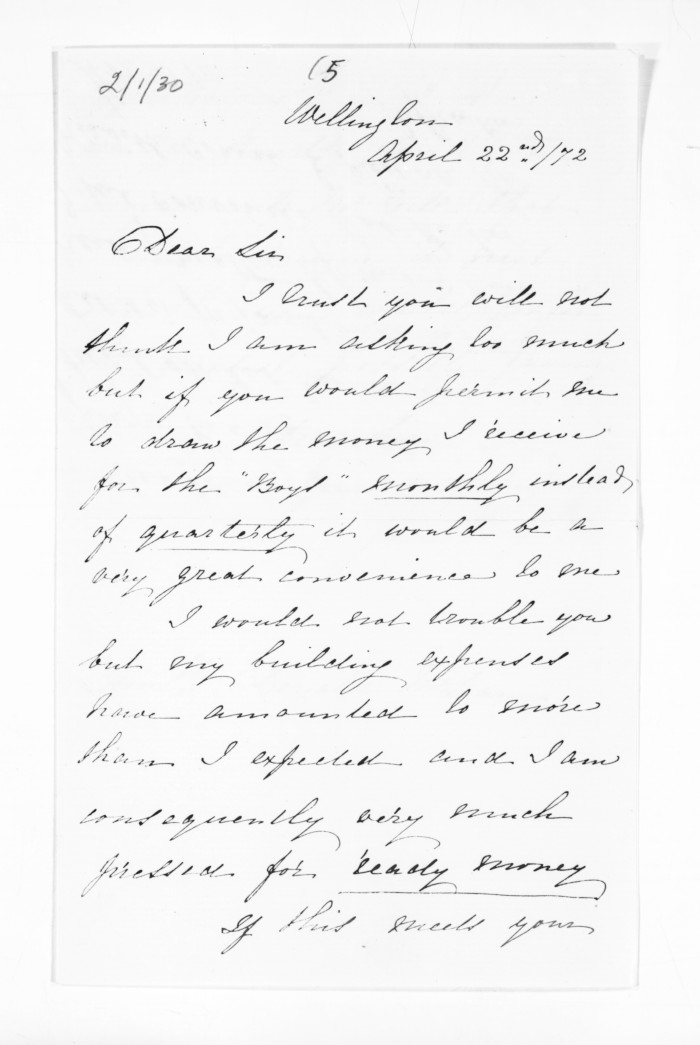 2/1/30
(5
Wellington
April 22nd/72
Dear Sir
I trust you will not
think I am asking too much
but if you would permit me
to draw the money I receive
for the "Boys" monthly instead
of quarterly it would be a
very great convenience to me
I would not trouble you
but my building expenses
have amounted to more
than I expected and I am
consequently very much
pressed for ready money
If this meets your